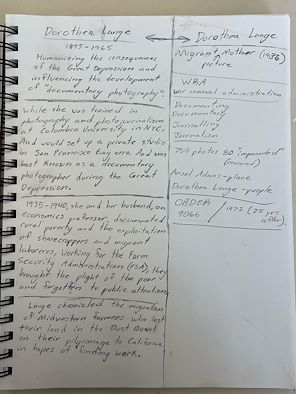 Dorothea Lange
1895-1965
Humanizing the consequences
of the Great Depression and
influencing the development
of "documentary photography".
While she was trained in
photography and photojournalism
at Columbia University in NYC.
And would set up a private studio
in San Francisco Bay area. And was
best known as a documentary
photographer during the Great
Depression.
1935-1940, she and her husband, an
economics professor, documented
rural poverty and the exploitation
of sharecroppers and migrant
laborers, working for the Farm
Security Administration (FSA), they
bought the plight of the poor &
and forgotten to public attention.
Lange chronicled the migration
of Midwestern farmers who lost
their land in the Dust Bowl
on their pilgrimage to California
in hopes of finding work.
Dorothea Lange
Migrant Mother (1936)
picture
WRA
war removal administration
Documenting
Documentary
Journalling
Journalism
700 photos 80 "impounded"
Ansel Adams - place
Dorothea Lange - people
ORDER
9066 / 1972 (25 yrs
after)